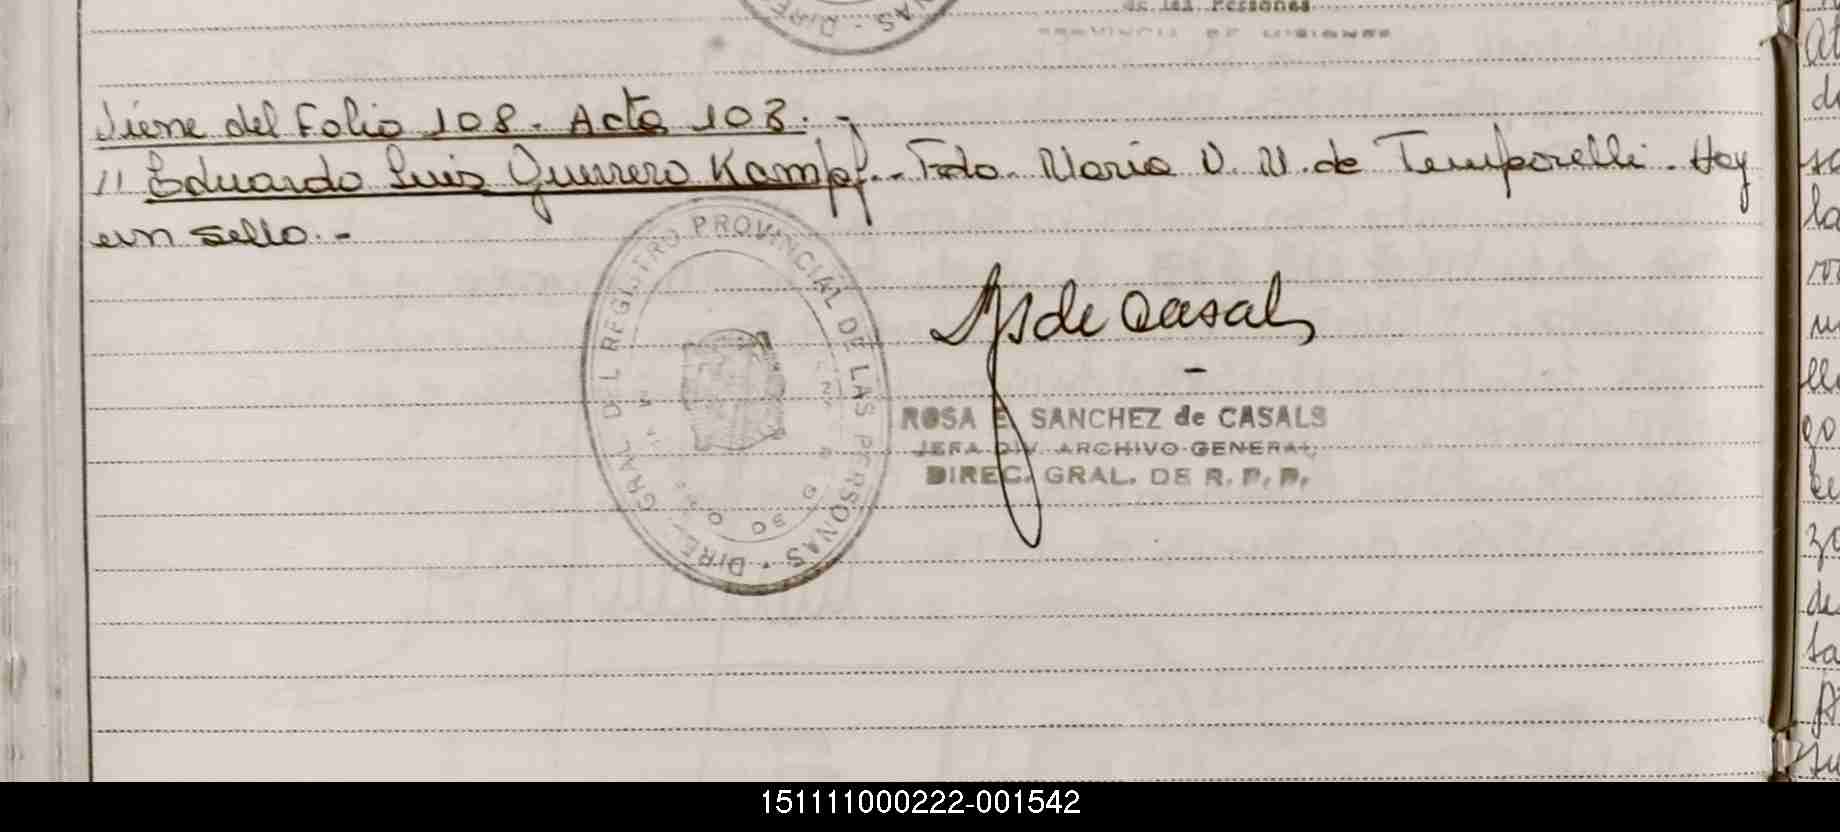 de las Personas
PROVINCIA DE MISIONES
Viene del Folio 108. Acta 103.-
// Eduardo Luis Guerrero Kampf.- Fdo. Maria V. V. de Temporelli. Hay
un sello.-
DIREC. GRAL DEL REGISTRO PROVINCIAL DE LAS PERSONAS
de Casals
ROSA E. SANCHEZ de CASALS
JEFA DIV. ARCHIVO GENERAL
DIREC. GRAL. DE R. P. P.
151111000222-001542